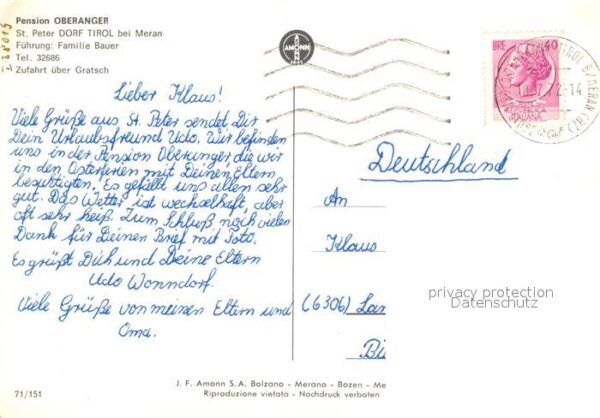 Pension OBERANGER
St. Peter DORF TIROL bei Meran
Führung: Familie Bauer
Tel. 32686
Zufahrt über Gratsch
AMONN
IRE 40
ITALIANA
72-14
Lieber Klaus!
Viele Grüße aus St. Peter sendet Dir
Dein Urlaubsfreund Udo. Wir befinden
uns in der Pension Oberanger, die wir
in den Osterferien mit Deinen Eltern
besichtigten. Es gefällt uns allen sehr
gut. Das Wetter ist wechselhaft, aber
oft sehr heiß. Zum Schluß noch vielen
Dank für Deinen Brief mit Foto.
Es grüßt Dich und Deine Eltern
Udo Wonndorf.
Viele Grüße von meinen Eltern und
Oma.
Deutschland
An
Klaus
(6306) Lan
privacy protection
Datenschutz
71/151
J. F. Amonn S.A. Bolzano - Merano - Bozen - Me
Riproduzione vietata - Nachdruck verboten